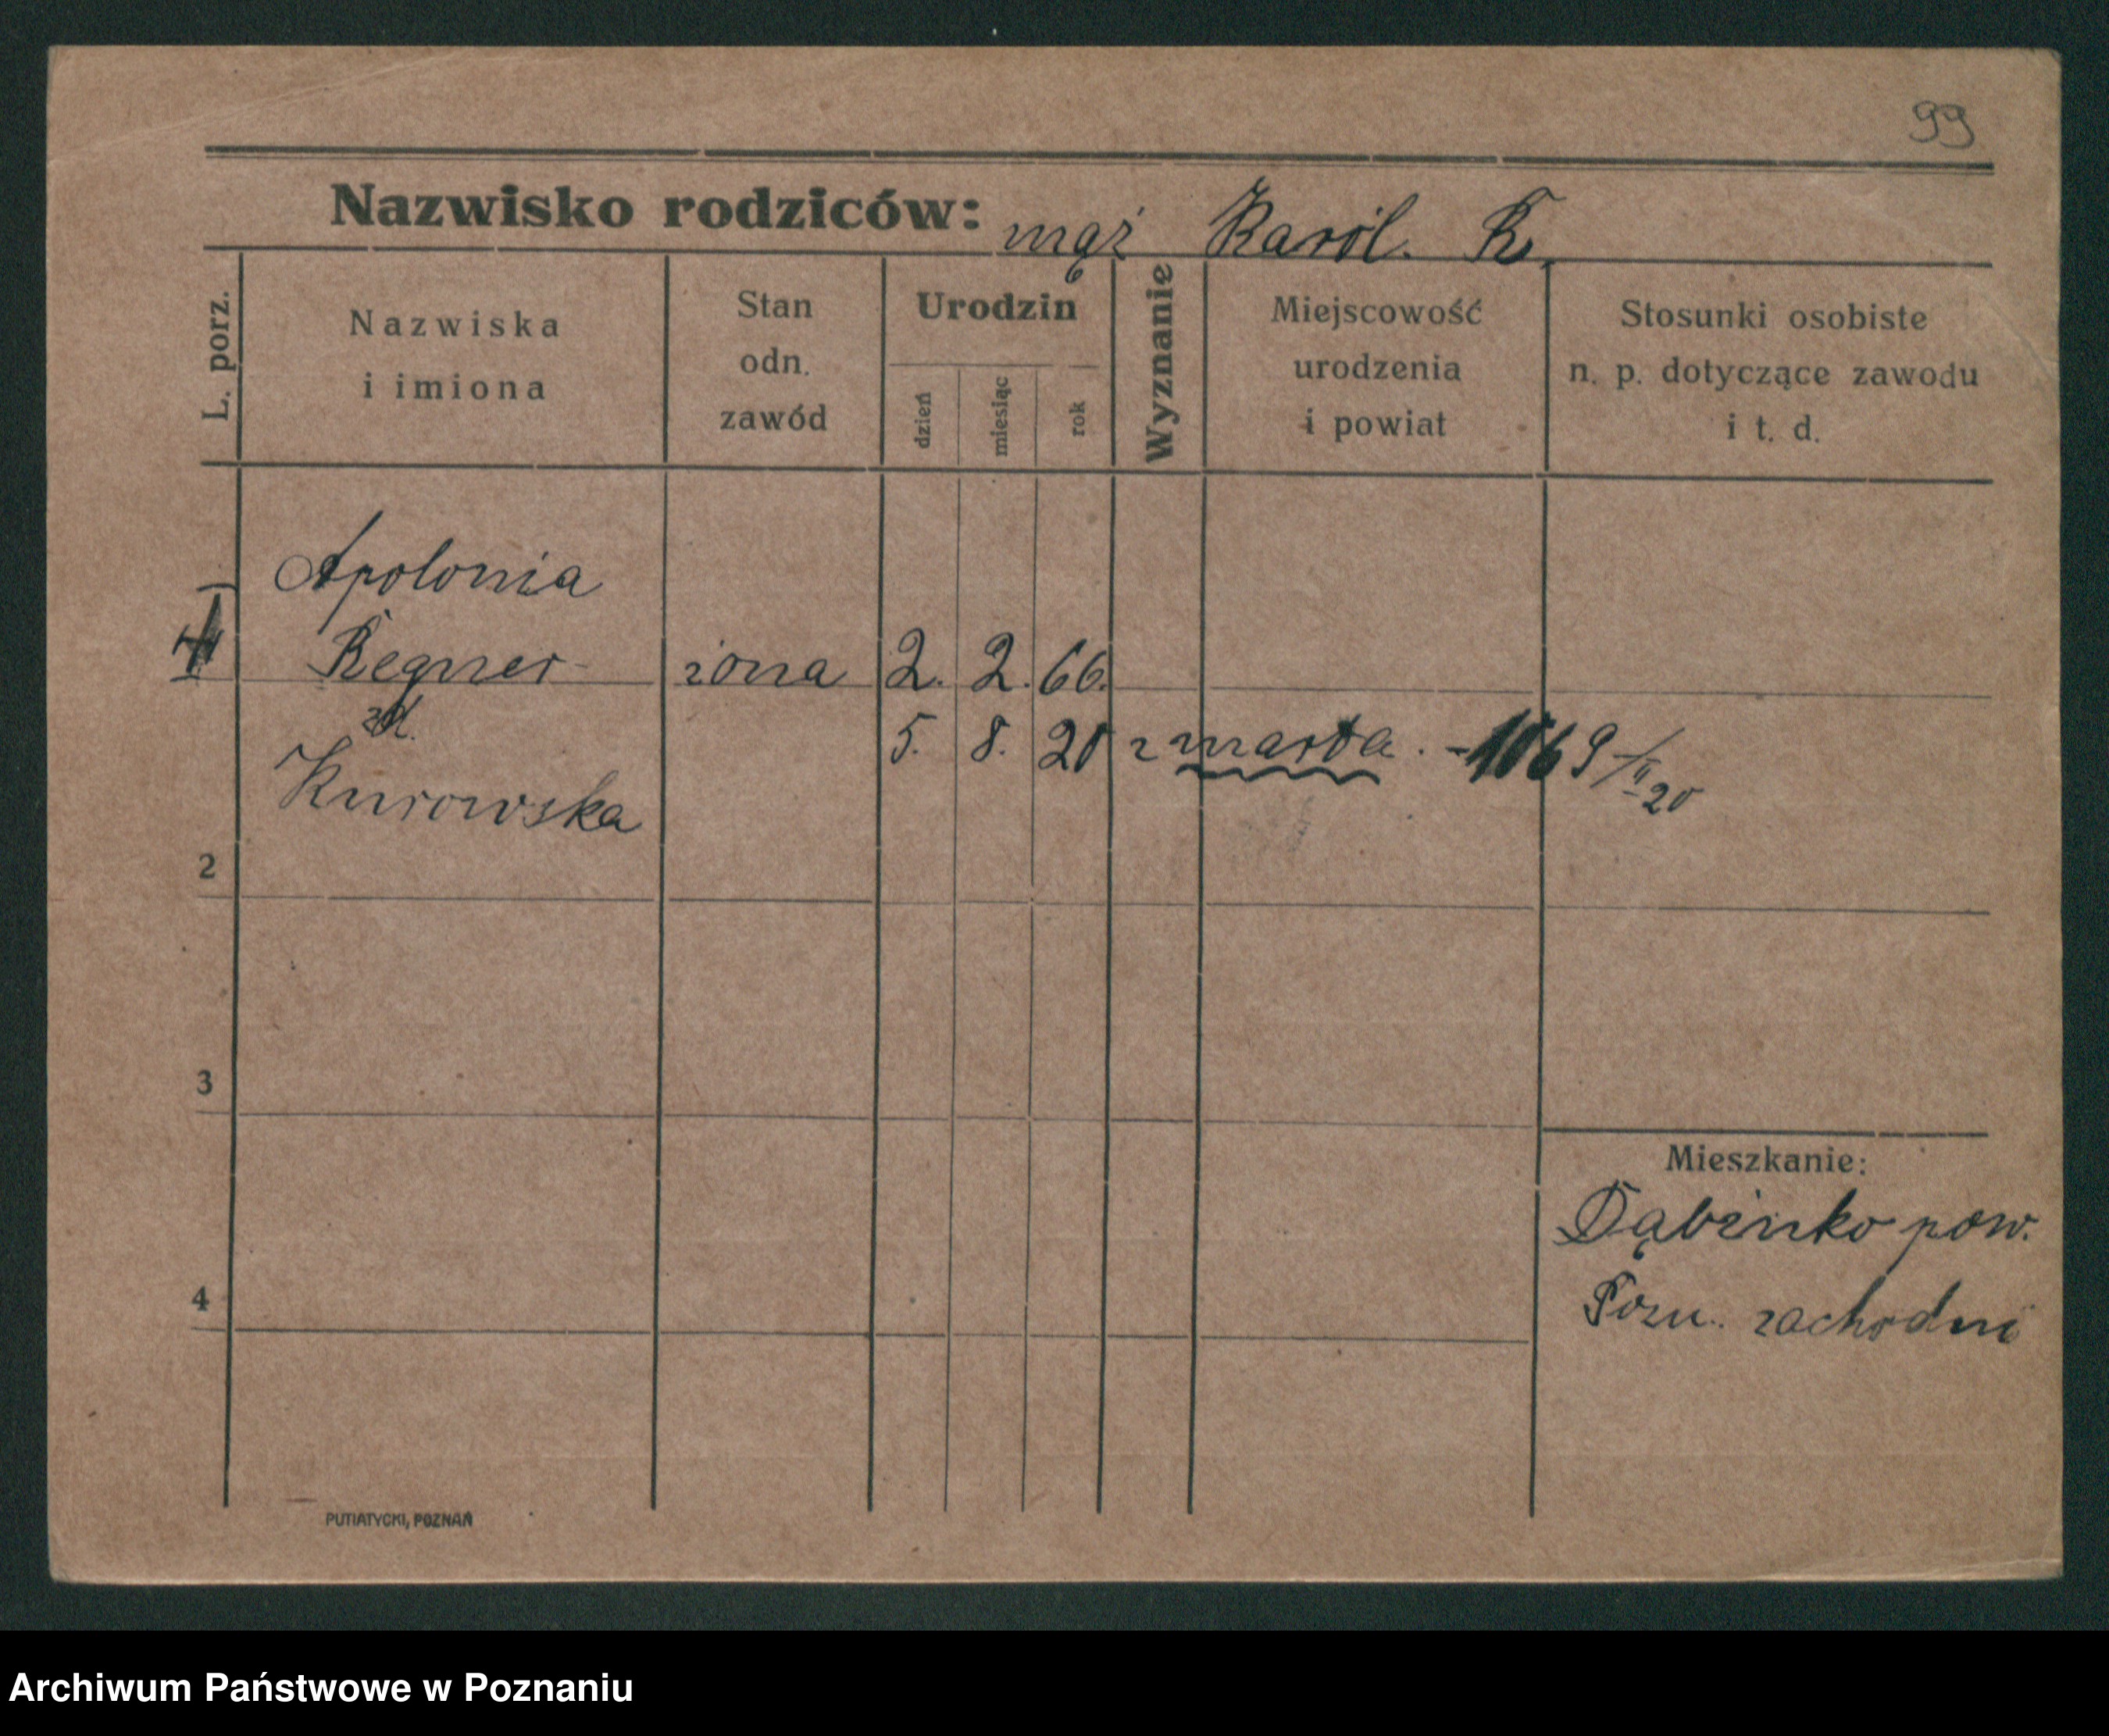 99
Nazwisko rodziców: mąż Karól. R.
L. porz.
Nazwiska
i imiona
Stan
odn.
zawód
Urodzin
dzień
miesiąc
rok
Wyznanie
Miejscowość
urodzenia
i powiat
Stosunki osobiste
n. p. dotyczące zawodu
i t. d.
Apolonia
Regner żona 2. 2. 66.
zd. 5. 8. 20 zmarła. - 1069/II 20
Kurowska
2
3
4
Mieszkanie:
Dąbrinko pow.
Pozn. zachodni
PUTIATYCKI, POZNAŃ
Archiwum Państwowe w Poznaniu